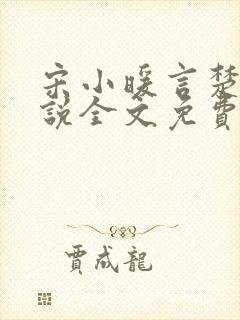 宋小暖言楚
說全文免費
賈成龍